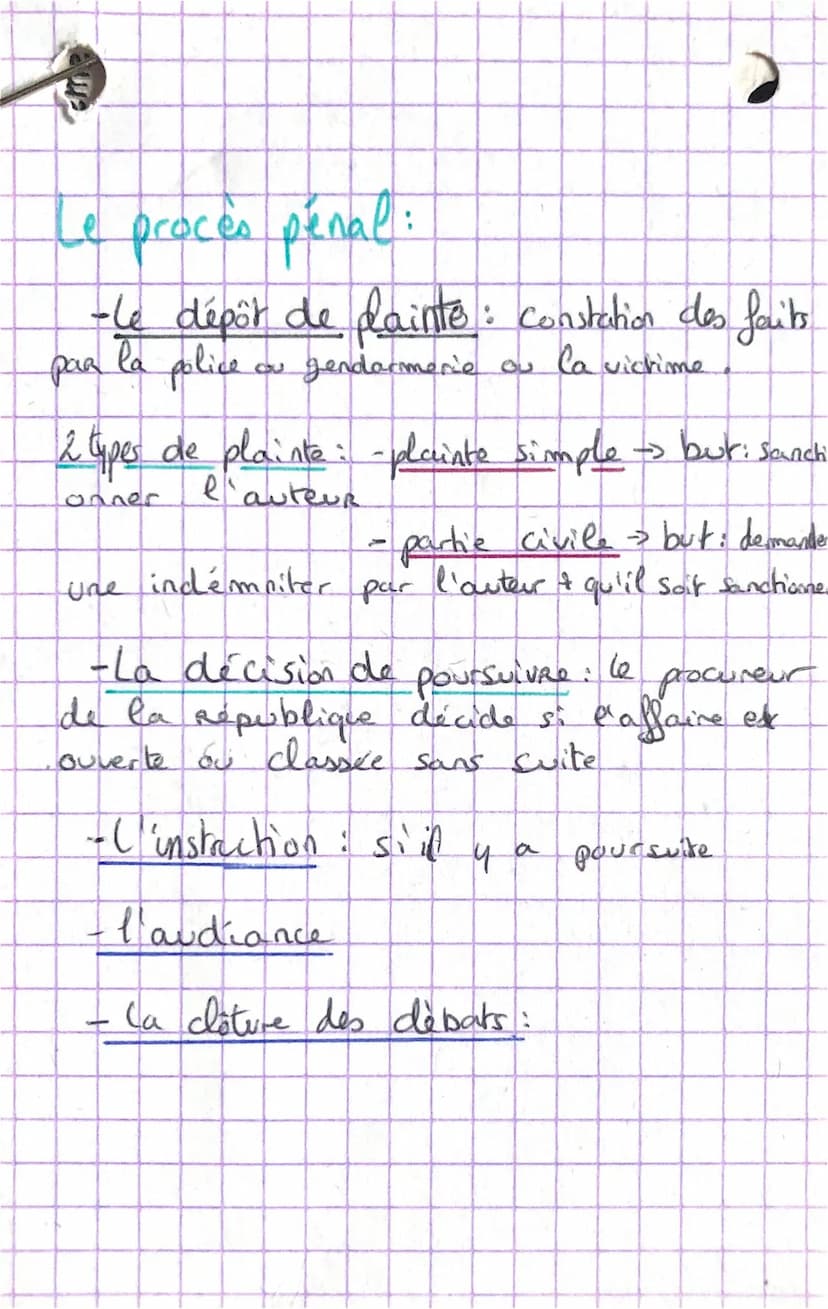 Le procès pénal :
- Le dépôt de plainte : constation des faits
par la police ou gendarmerie ou la victime.
2 types de plainte : - plainte simple → but : sancti
onner l'auteur
- partie civile → but : demander
une indémniter par l'auteur + qu'il soit sanctionne
- La décision de poursuivre : le procureur
de la république décide si l'affaire est
ouverte ou classée sans suite
- L'instruction : s'il y a poursuite
- l'audiance
- La clôture des débats :